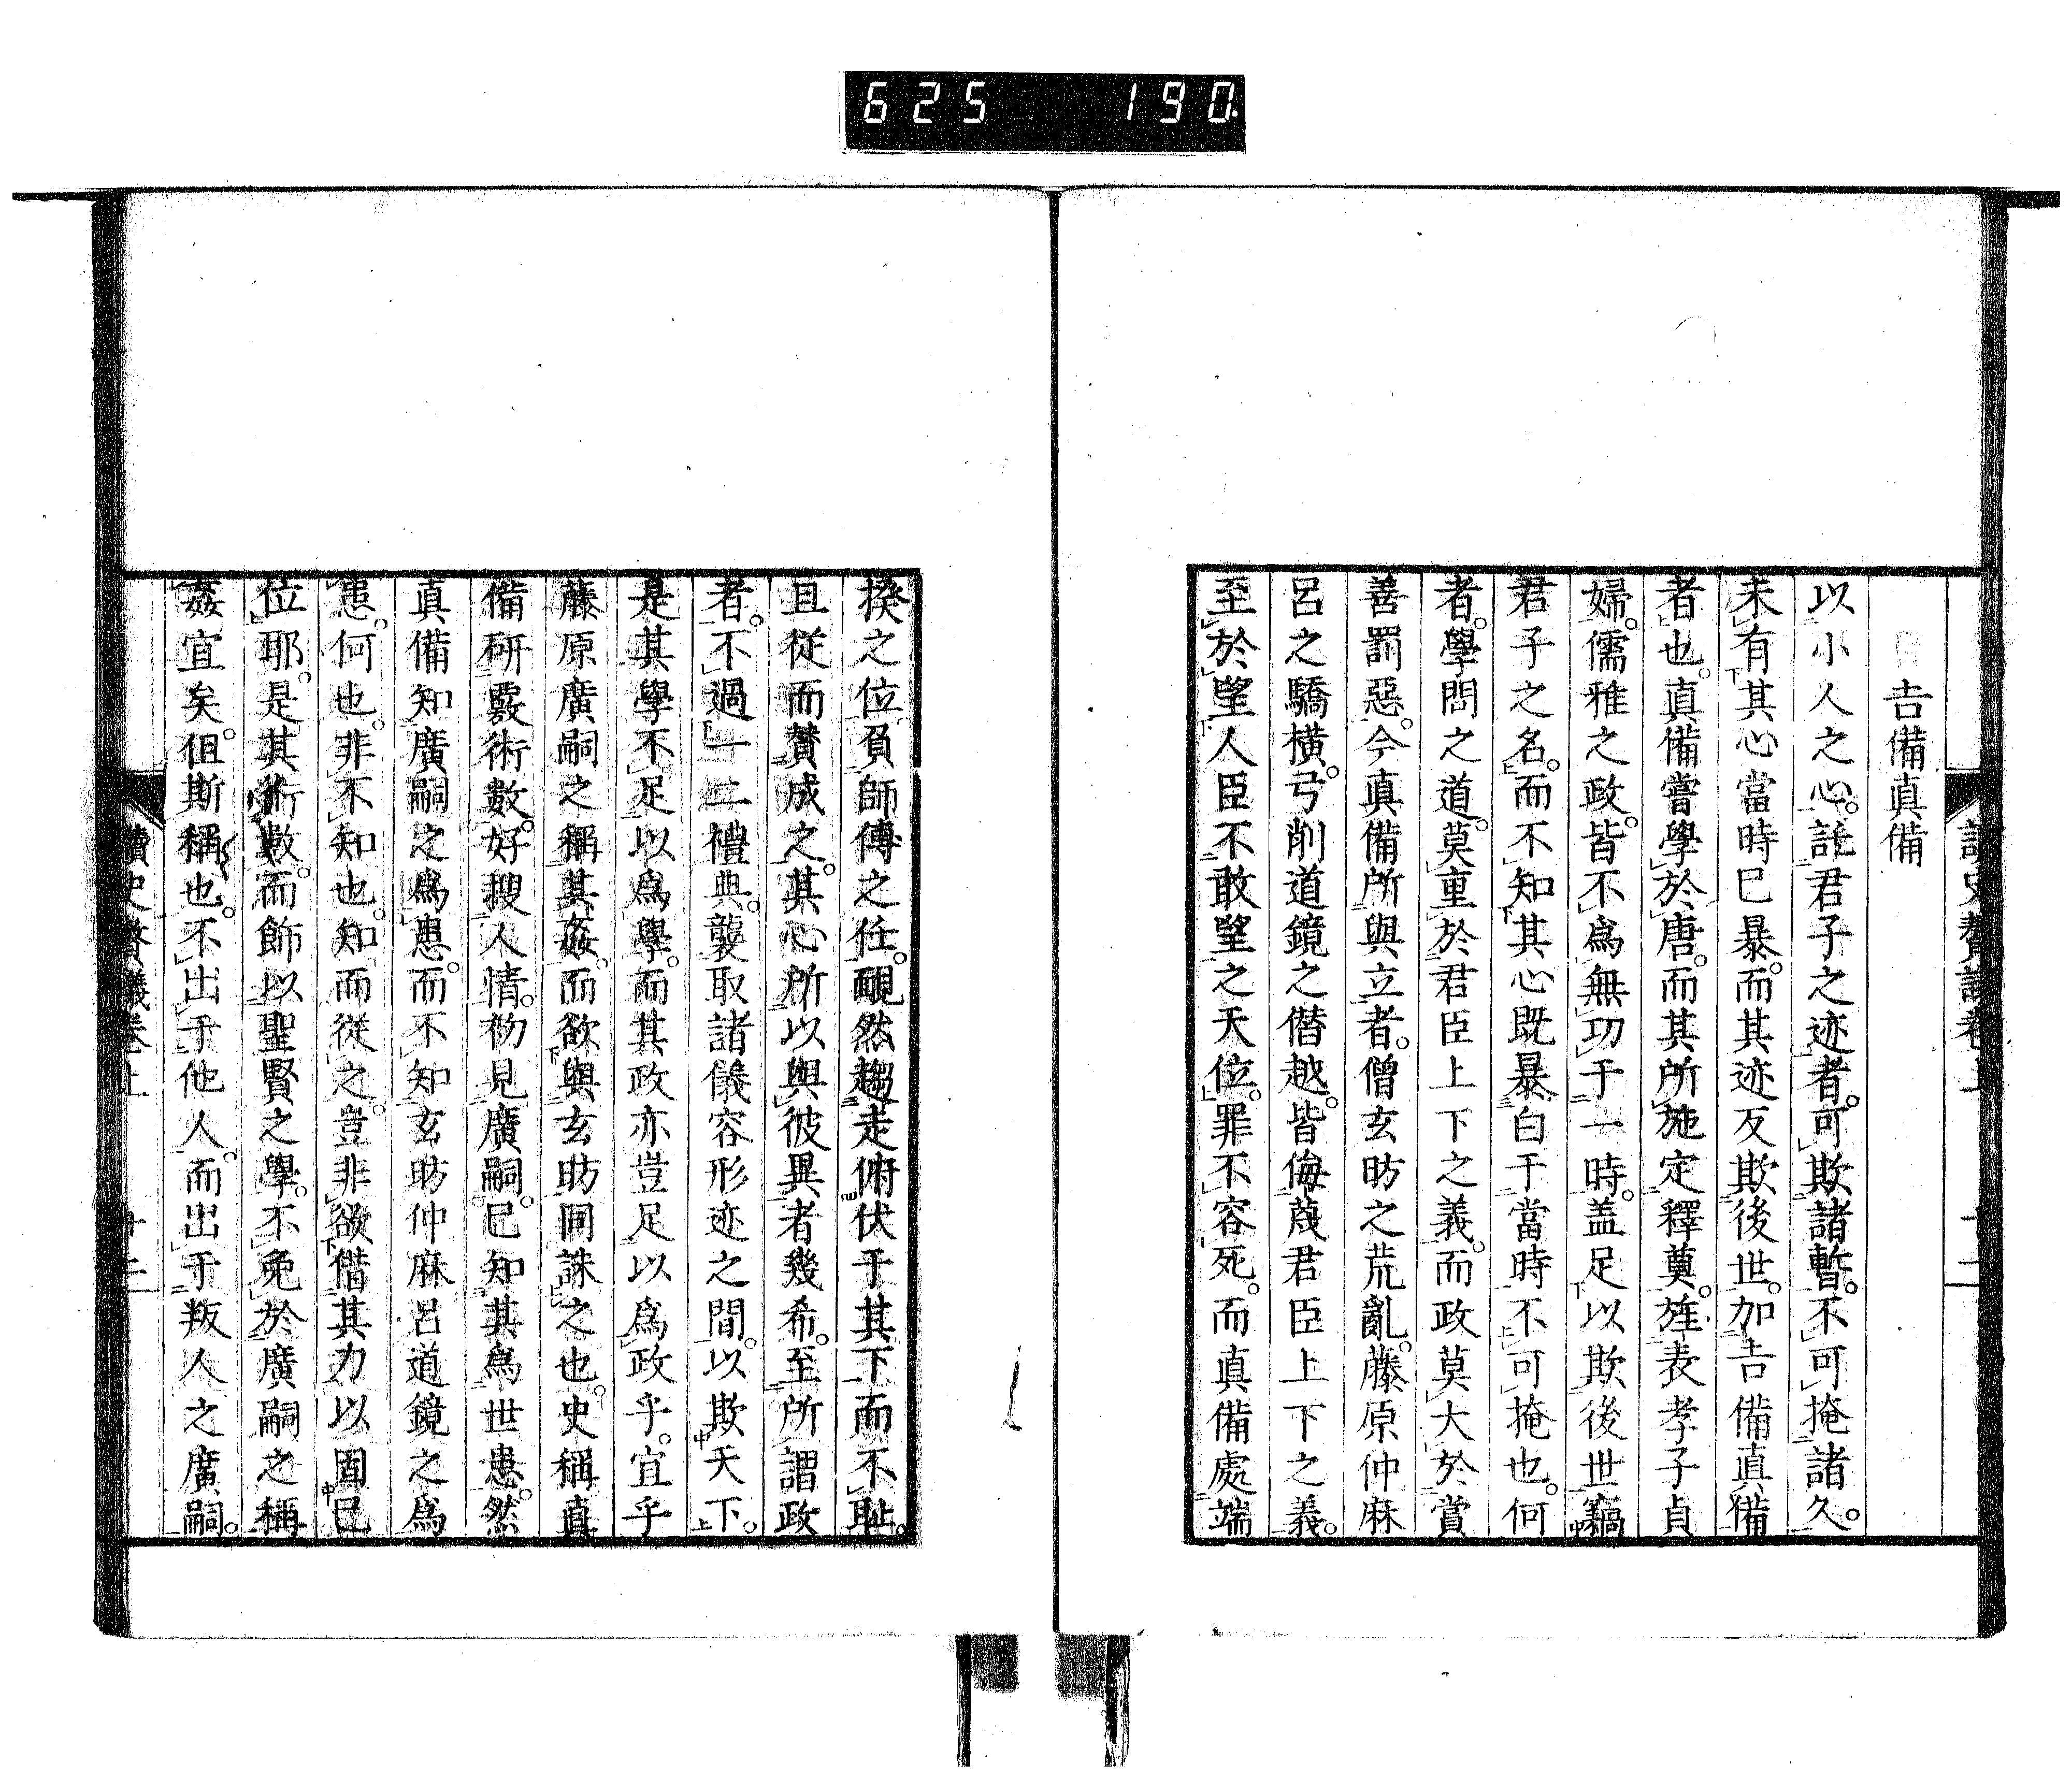 625 190
吉備真備
以小人之心。託君子之迹者。可欺諸暫。不可掩諸久。
未有其心當時已暴。而其迹反欺後世。加吉備真備
者也。真備嘗學於唐。而其所施定釋奠。旌表孝子貞
婦。儒雅之政。皆不爲無功于一時。盖足以欺後世竊
君子之名。而不知其心既暴白于當時不可掩也。何
者。學問之道。莫重於君臣上下之義。而政莫大於賞
善罰惡。今真備所與立者。僧玄昉之荒亂。藤原仲麻
呂之驕橫。弓削道鏡之僭越。皆侮蔑君臣上下之義。
至於望人臣不敢望之天位。罪不容死。而真備處端
揆之位負師傅之任。靦然趨走俯伏于其下而不恥。
且從而賛成之。其心所以與彼異者幾希。至所謂政
者。不過一二禮典。襲取諸儀容形迹之間。以欺天下。
是其學不足以爲學。而其政亦豈足以爲政乎。宜乎
藤原廣嗣之稱其姦。而欲與玄昉同誅之也。史稱真
備研覈術數。好搜人情。初見廣嗣。已知其爲世患。然
真備知廣嗣之爲患。而不知玄昉仲麻呂道鏡之爲
患。何也。非不知也。知而從之。豈非欲僭其力以固已
位耶。是其術數。而飾以聖賢之學。不免於廣嗣之稱
姦宜矣。但斯稱也。不出于他人。而出于叛人之廣嗣。
讀史贅議卷上 十二